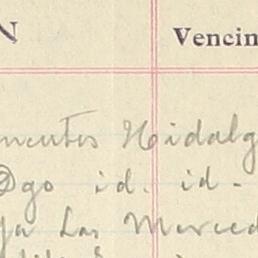 N Vencin
mentos Hidalg
@go id. id.-
ja Las Merced